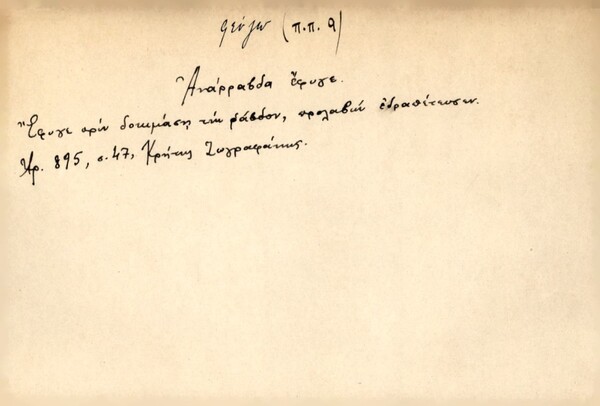 φεύγω (π.π. 9)
Ἀνάρραβδα ἔφυγε.
Ἔφυγε πρὶν δοκιμάσῃ τὴν ράβδον, προλαβὼν ἐδραπέτευσεν.
Ἀρ. 895, σ. 47, Κρήτης Ζωγραφάκης.